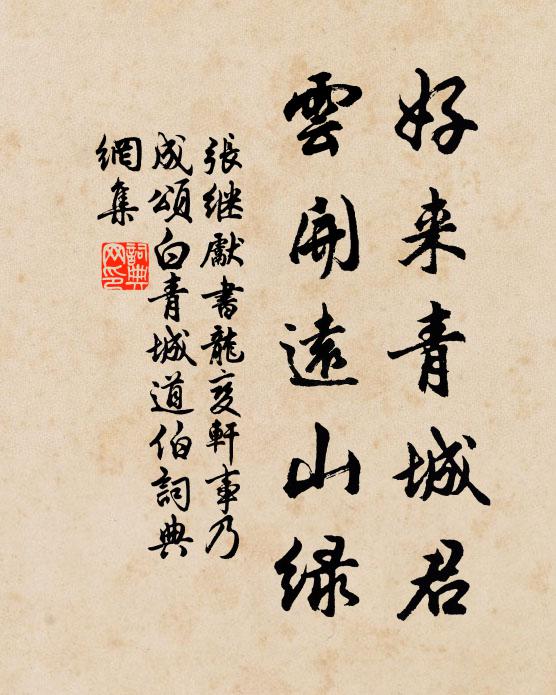 好来青城君
雲開遠山绿
張继獻書龍变軒事乃
成頌白青城道伯詞典
網集
詞典
网印